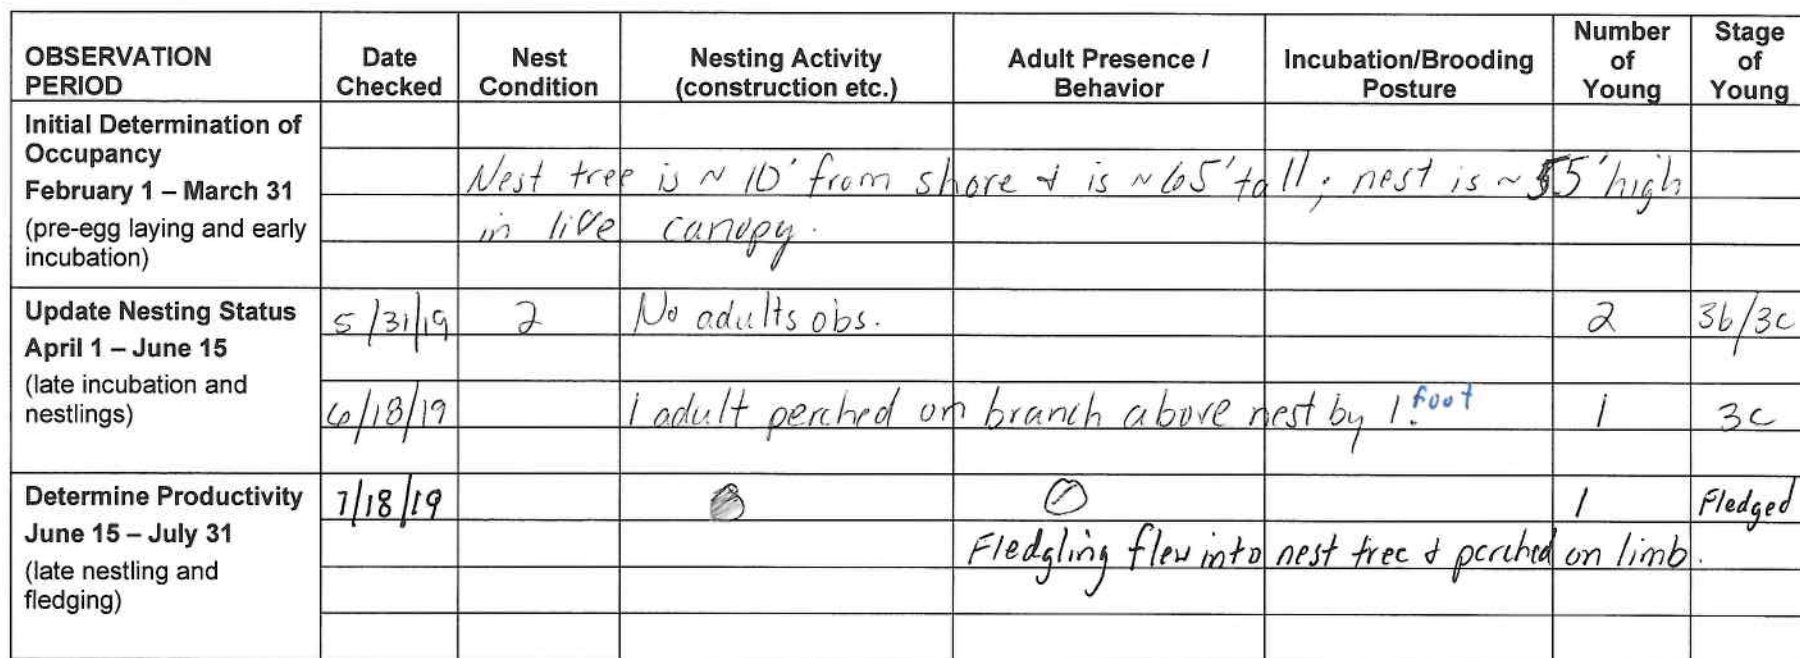 OBSERVATION PERIOD | Date Checked | Nest Condition | Nesting Activity (construction etc.) | Adult Presence / Behavior | Incubation/Brooding Posture | Number of Young | Stage of Young
Initial Determination of
Occupancy
February 1 – March 31
(pre-egg laying and early
incubation)
Nest tree is ~ 10' from shore & is ~65' tall; nest is ~55' high
in live canopy.
Update Nesting Status
April 1 – June 15
(late incubation and
nestlings)
5/31/19 2 No adults obs. 2 3b/3c
6/18/19 1 adult perched on branch above nest by 1. foot 1 3c
Determine Productivity
June 15 – July 31
(late nestling and
fledging)
7/18/19 1 Fledged
Fledgling flew into nest tree & perched on limb.